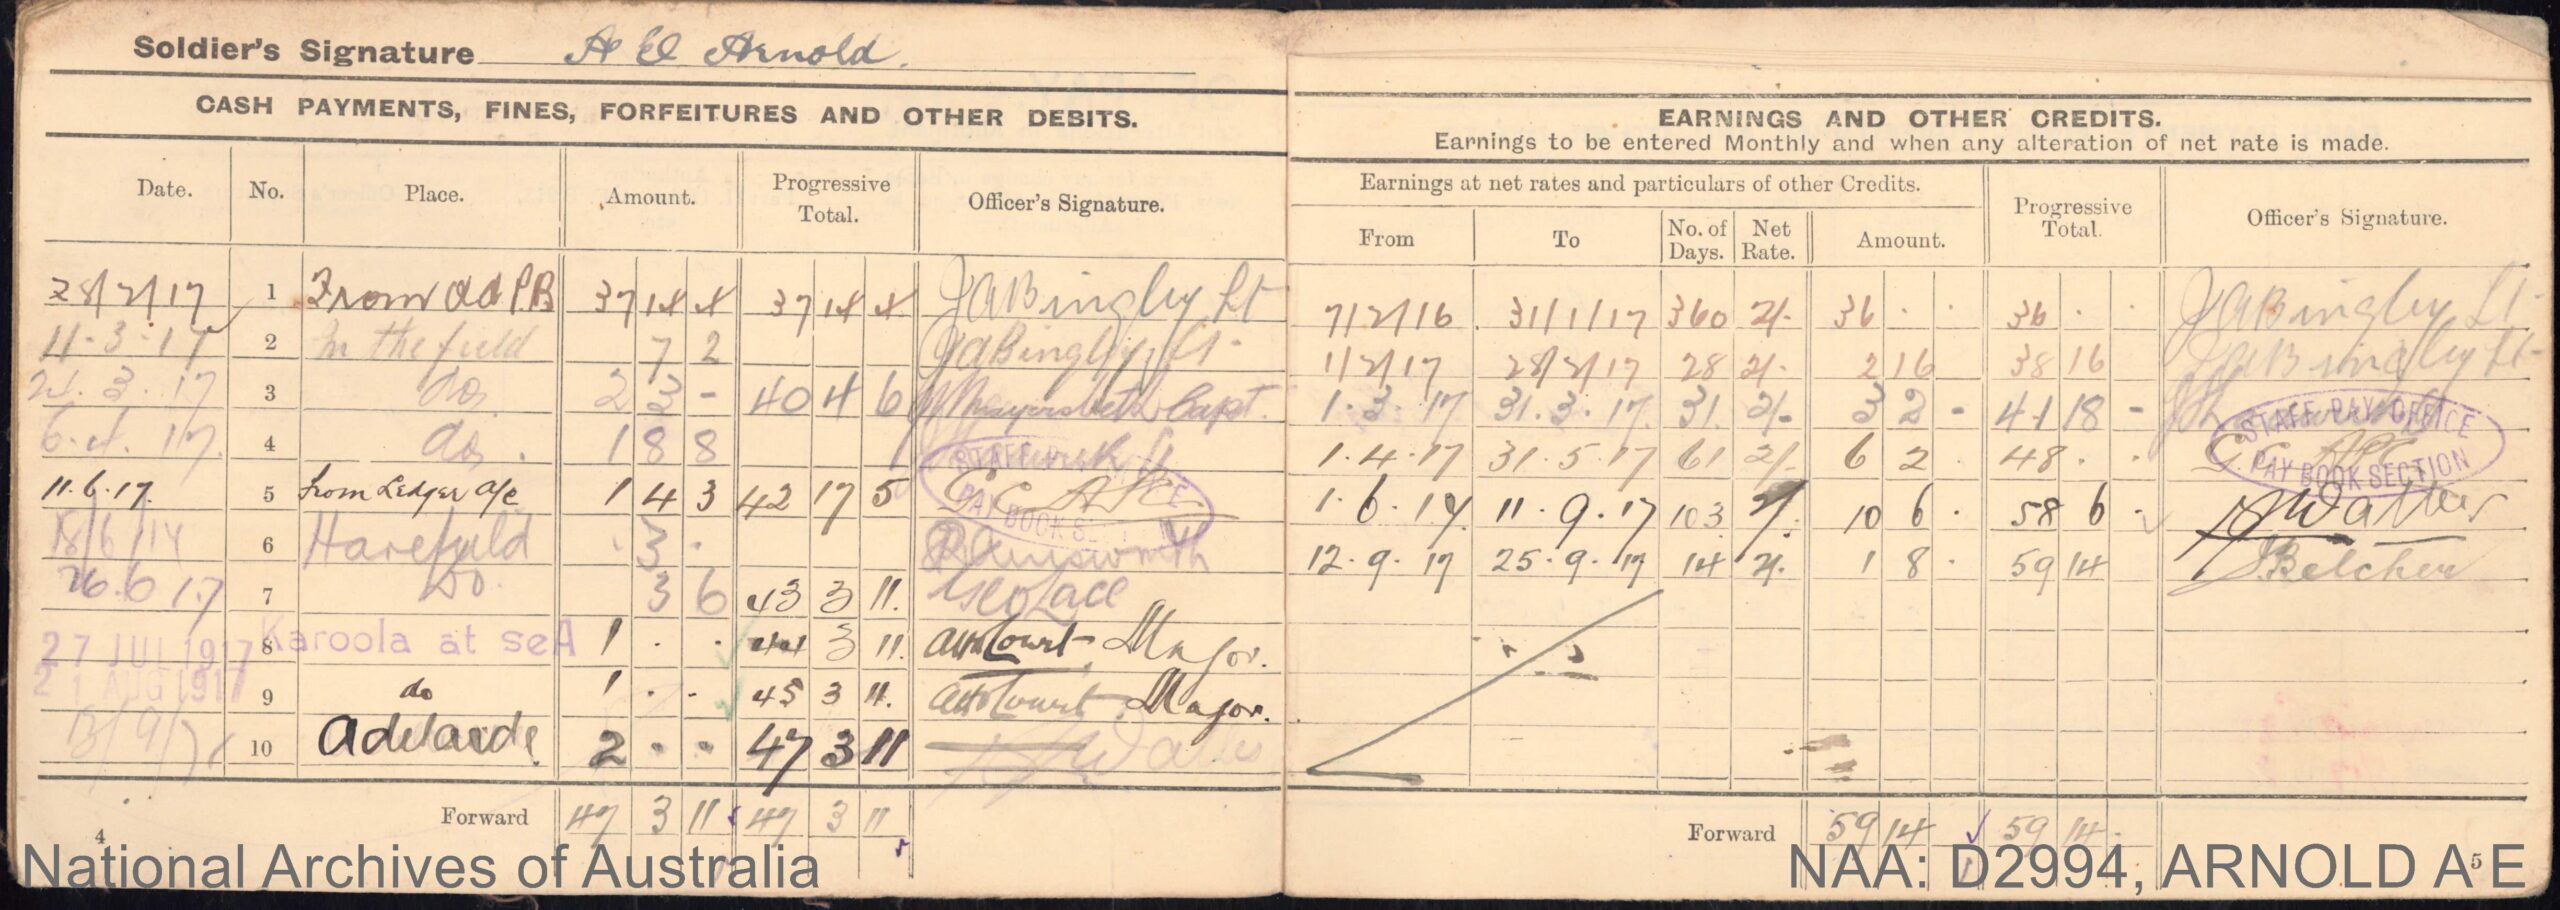 Soldier's Signature A E Arnold.
CASH PAYMENTS, FINES, FORFEITURES AND OTHER DEBITS.
Date. No. Place. Amount. Progressive Total. Officer's Signature.
28/2/17 1 From Old P.B 37 14 4 37 14 4 J A Bingley Lt
11.3.17 2 In the field 7 2 J A Bingley Lt.
24.3.17 3 do. 2 3 - 40 4 6 Capt.
6.4.17. 4 do. 1 8 8
11.6.17. 5 From Ledger a/c 1 4 3 42 17 5 STAFF PAY OFFICE PAY BOOK SECTION
18/6/17 6 Harefield . 3 .
26.6.17 7 Do. 3 6 43 3 11. Geo Lace
27 JUL 1917 8 Karoola at seA 1 . . 44 3 11. Court Major.
21 AUG 1917 9 do 1 . . 45 3 11. Court Major.
13/9/17 10 Adelaide. 2 . . 47 3 11
Forward 47 3 11 47 3 11
4
EARNINGS AND OTHER CREDITS.
Earnings to be entered Monthly and when any alteration of net rate is made.
Earnings at net rates and particulars of other Credits. Progressive Total. Officer's Signature.
From To No. of Days. Net Rate. Amount.
7/2/16 31/1/17 360 2/- 36 . . 36 . . J A Bingley Lt.
1/2/17 28/2/17 28 2/- 2 16 38 16 J A Bingley Lt.
1.3.17 31.3.17. 31. 2/- 3 2 - 41 18 -
1.4.17 31.5.17 61 2/- 6 2 48 . . STAFF PAY OFFICE PAY BOOK SECTION
1.6.17. 11.9.17 103 2/- 10 6 . 58 6 . Walker
12.9.17 25.9.17 14 2/- 1 8 . 59 14 J. Belcher
Forward 59 14 59 14 .
5
National Archives of Australia
NAA: D2994, ARNOLD A E